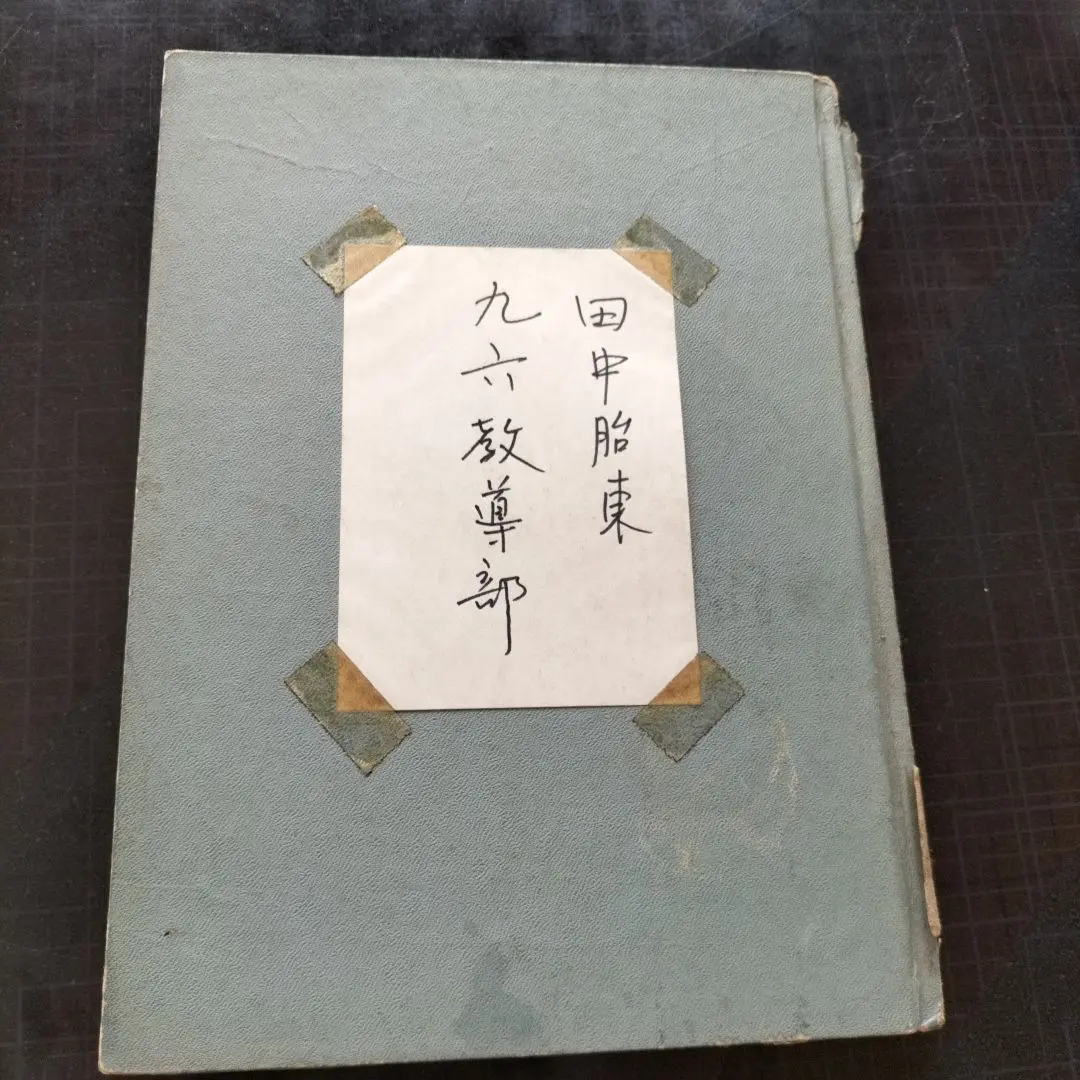 田中胎東
九六教導部